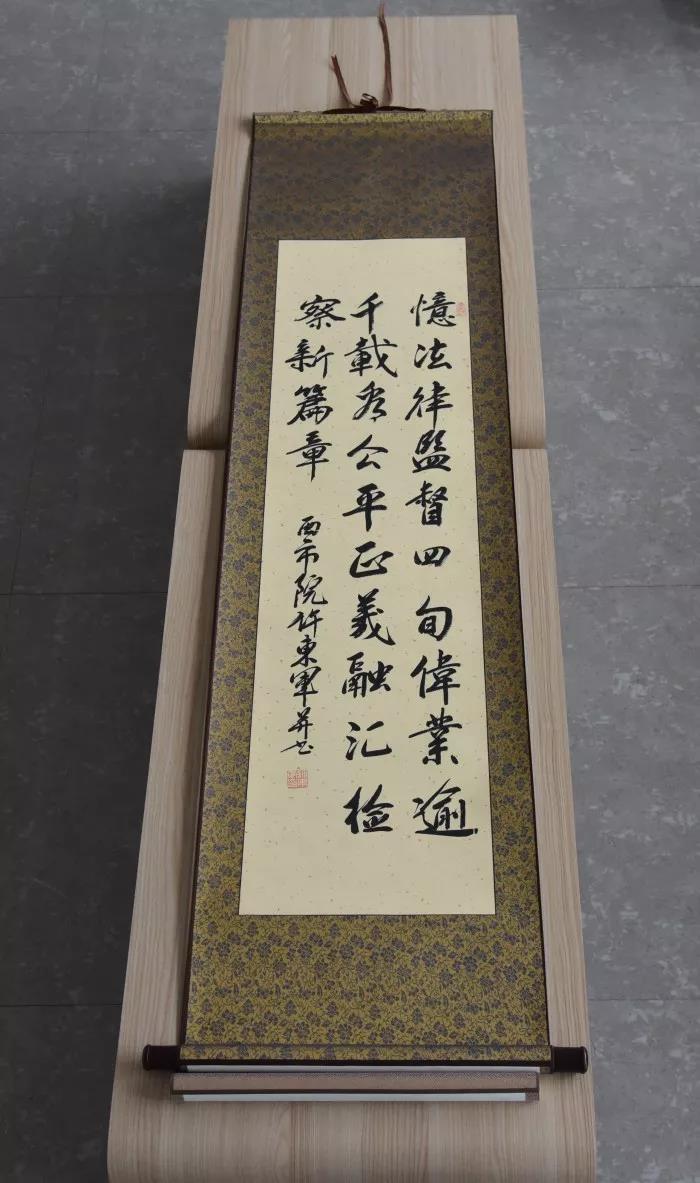 憶法律監督四旬偉業逾
千載看公平正義融汇检
察新篇章 西市院许東軍并书